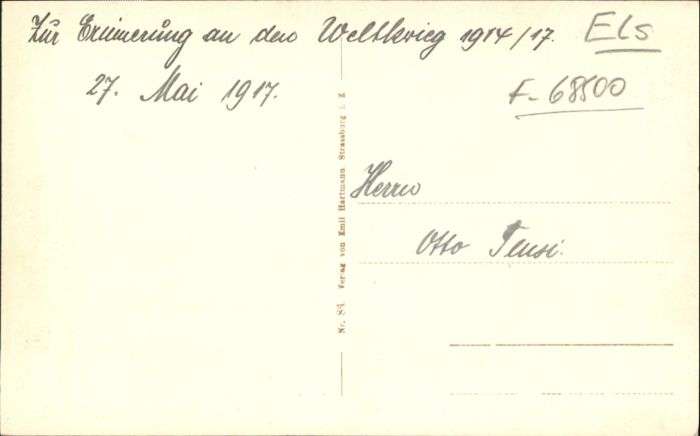 Zur Erinnerung an den Weltkrieg 1914/17.
Els
27. Mai 1917.
F-68500
Herrn
Otto
Nr. 84. Verlag von Emil Hartmann Strassburg i. E